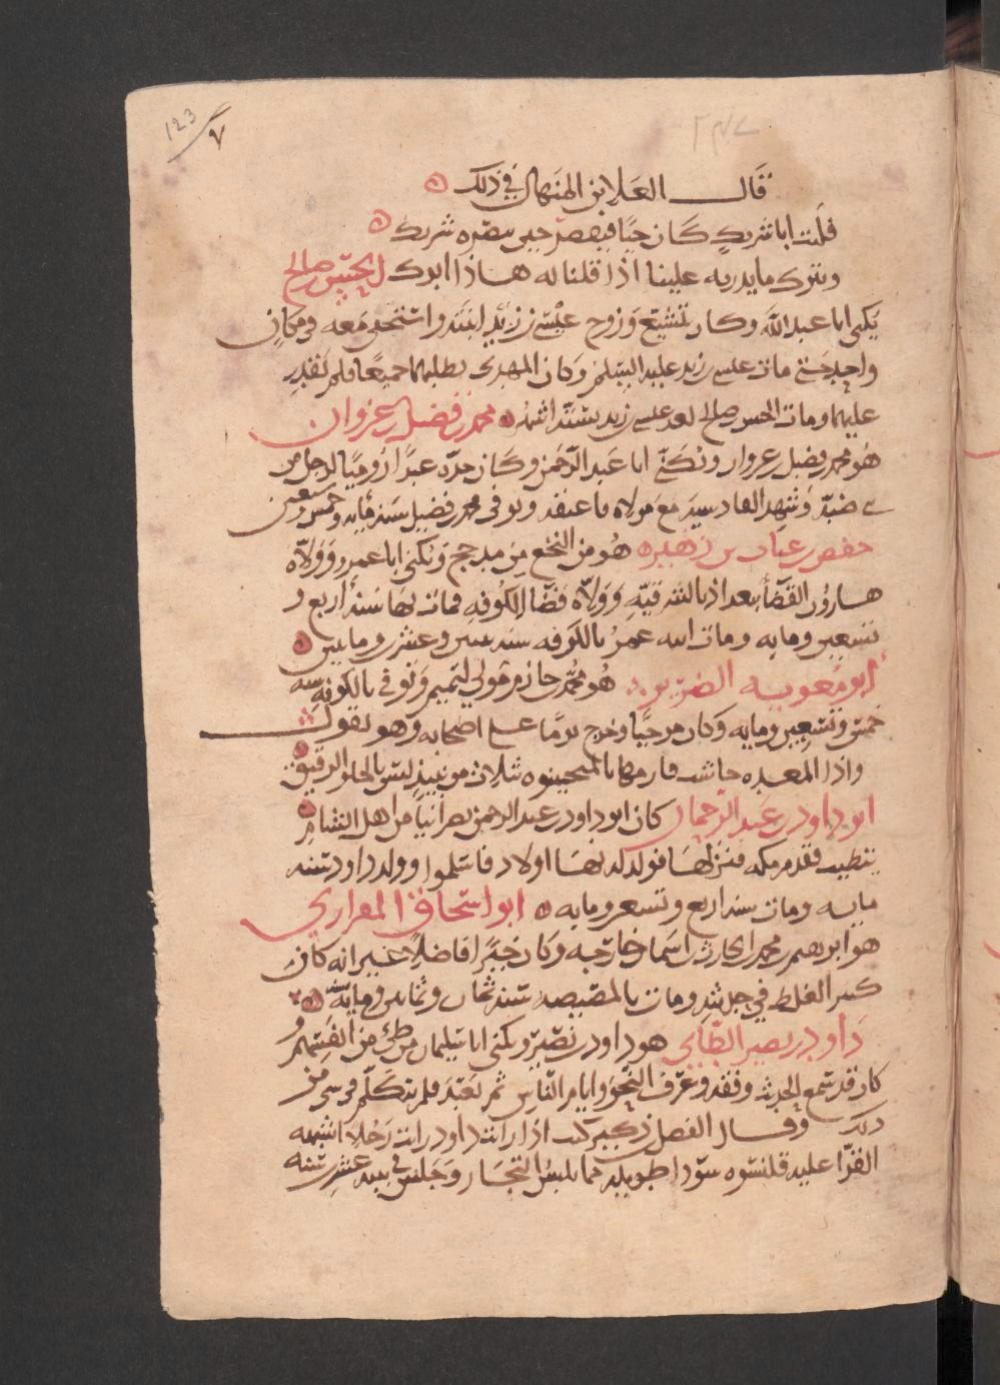 123
٧
قال العلا بن المنهال في ذلك
فليت ابا شريك كان حيا فيقصر حين يبصره شريك
ويترك من تدريه علينا اذا قلنا له هاذا ابوك الحسن بن صالح
يكنى ابا عبد الله وكان يتشيع وزوج عيسى بن زيد ابنته واستخفى معه في مكان
واحد حتى مات عيسى بن زيد عليه السلم وكان المهدي يطلبهما جميعا فلم يقدر
عليهما ومات الحسن بن صالح بعد عيسى بن زيد بستة اشهر محمد بن فضيل بن غزوان
هو محمد بن فضيل بن غزوان ويكنى ابا عبد الرحمن وكان جده عبدا روميا لرجل من
بني ضبة وشهد القادسية مع مولاه فاعتقه وتوفى محمد بن فضيل سنة مايه وخمس وتسعين
حفص بن غياث هو من النخع من مذحج ويكنى ابا عمرو وولاه
هارون القضا ببغداد بالشرقيه وولاه قضا الكوفه فمات بها سنة اربع و
تسعين ومايه ومات ابنه عمر بالكوفه سنه اثنتين وعشرين ومايتين
ابو معويه الضرير هو محمد بن خازم مولى لتميم وتوفى بالكوفه سنه
خمس وتسعين ومايه وكان مرجيا وخرج يوما على اصحابه وهو يقول
واذا المعده جاشت فارمها بالمنجنيق ثلاث من نبيذ ليس بالحلو الرقيق
ابو داود بن عبد الرحمان كان ابو داود بن عبد الرحمن نصرانيا من اهل الشام
يتطبب فقدم مكه فنزلها فولد له بها اولاد فاسلموا وولد داود سنه
مايه ومات سنة اربع وتسعين ومايه ابو اسحاق الفزاري
هو ابرهيم بن محمد بن الحارث بن اسما بن خارجه وكان خيرا فاضلا غير انه كان
كثير الغلط في حديثه ومات بالمصيصه سنة ثمان وثمانين ومايه
داود بن نصير الطايي هو داود بن نصير ويكنى ابا سليمان من طي من انفسهم و
كان قد سمع الحديث وفقه وعرف النحو وايام الناس ثم تعبد فلم يتكلم في شي من
ذلك وقال الفضل بن دكين كنت اذا رايت داود رايت رجلا لا يشبه
القرا عليه قلنسوه سودا طويله مما يلبس التجار وجلس في بيته عشرين سنه